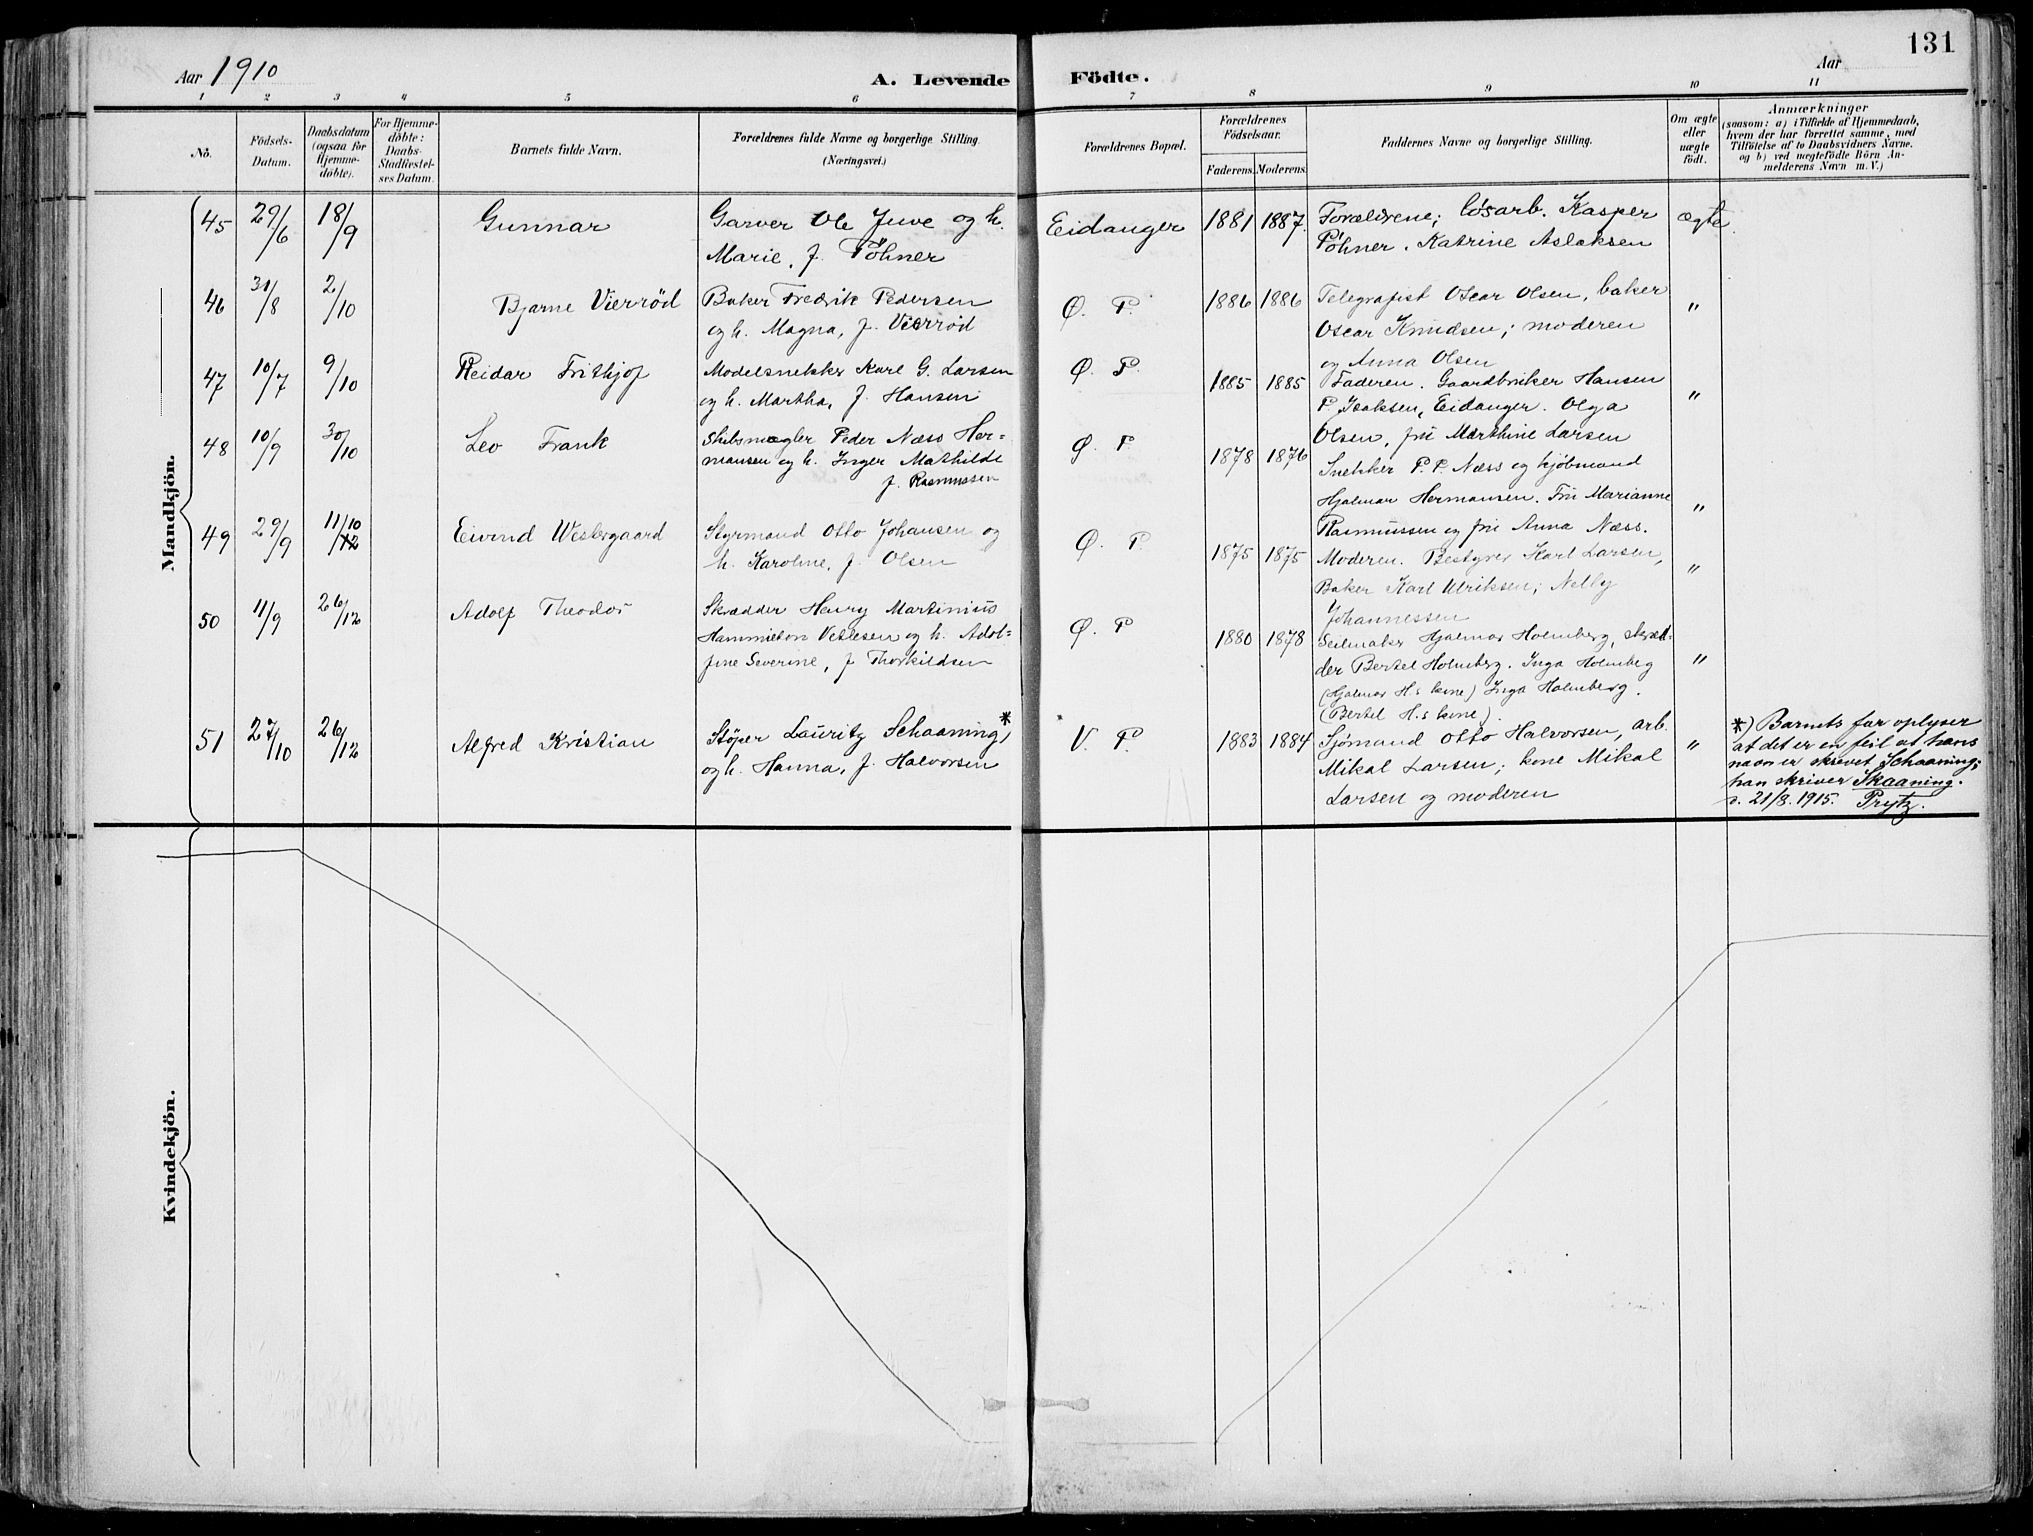 Aar 1910
A. Levende
1 2 3 4 5 6
No.
Födsels-
Datum.
Daabsdatum
(ogsaa for
Hjemme-
døbte).
For Hjemme-
døbte:
Daabs-
Stadfæstel-
ses Datum.
Barnets fulde Navn.
Forældrenes fulde Navne og borgerlige Stilling
(Næringsvei.)
Mandkjön.
45 29/6 18/9 Gunnar Garver Ole Juve og h.
Marie, f. Pöhner
46 31/8 2/10 Bjarne Vierröd Baker Fredrik Pedersen
og h. Magna, f. Vierröd
47 10/7 9/10 Reidar Frithjof Modelsnekker Karl G. Larsen
og h. Martha, f. Hansen
48 10/9 30/10 Leo Frank Skibsmægler Peder Næss Her-
mansen og h. Inger Mathilde
f. Rasmussen
49 29/9 11/10 12 Eivind Westergaard Styrmand Otto Johansen og
h. Karoline, f. Olsen
50 11/9 26/12 Adolf Theodor Skrædder Henry Martinius
Hammieton Vetlesen og h. Adol-
fine Severine, f Thorkildsen
51 27/10 26/12 Alfred Kristian Stöper Lauritz Schaaning*,
og h. Hanna, f. Halvorsen
Kvindekjön.
131
Födte.
Aar
7 8 9 10 11
Forældrenes Bopæl.
Forældrenes
Födselsaar.
Faderens. Moderens.
Faddernes Navne og borgerlige Stilling.
Om ægte
eller
uægte
født.
Anmærkninger
(saasom: a) i Tilfælde af Hjemmedaab,
hvem der har forrettet samme, med
Tilföielse af to Daabsvidners Navne.
og b) ved uægtefödte Börn An-
melderens Navn m. V.)
Eidanger 1881 1887. Forældrene; lösarb. Kasper ægte.
Pöhner. Katrine Aslaksen
Ø. P. 1886 1886 Telegrafist Oscar Olsen, baker "
Oscar Knudsen; moderen
og Anna Olsen
Ø. P. 1885 1885 Faderen. Gaardbruker Hansen "
P. Isaksen, Eidanger. Olga
Olsen, fru Marthine Larsen
Ø. P 1878 1876 Snekker P. P. Næss og kjöbmand
Hjalmar Hermansen. Fru Marianne "
Rasmussen og fru Anna Næss.
Ø. P. 1875 1875 Moderen. Bestyrer Karl Larsen, "
Baker Karl Ulriksen; Nelly
Johannessen
Ø. P 1880 1878 Seilmaker Hjalmar Holmberg, skræd-
der Bertel Holmberg. Inga Holmberg "
(Hjalmar H.s kone) Inga Holmberg.
(Bertel H.s kone).
V. P. 1883 1884 Sjömand Otto Halvorsen, arb. "
Mikal Larsen; kone Mikal
Larsen og moderen
*) Barnets far oplyser
at det er en feil at hans
navn er skrevet Schaaning;
han skriver Skaaning.
p. 21/8. 1915. Prytz.